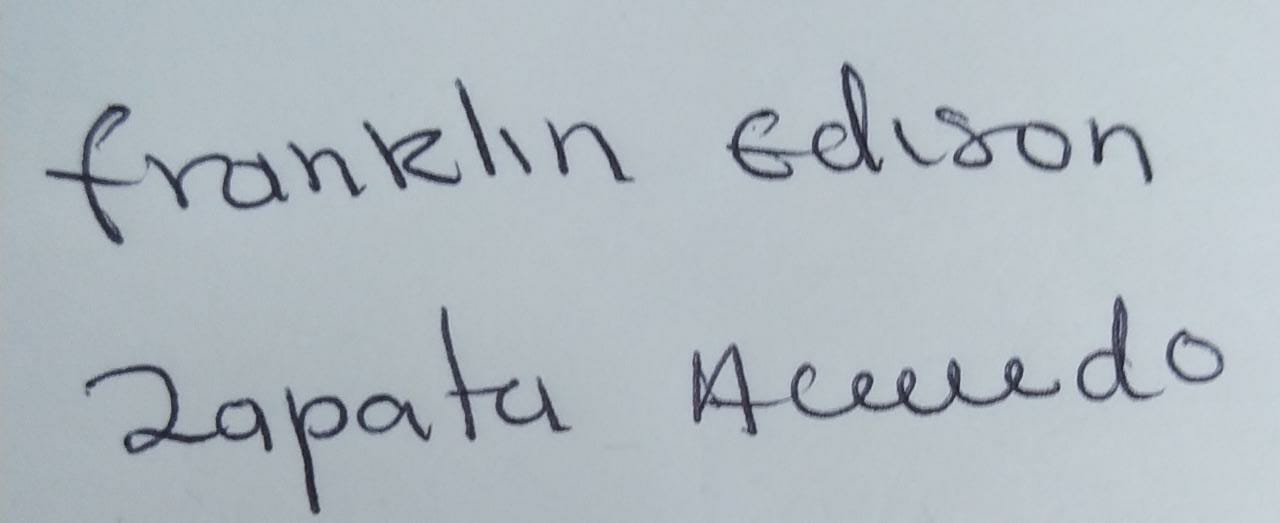 franklin Edison
Zapata Acevedo